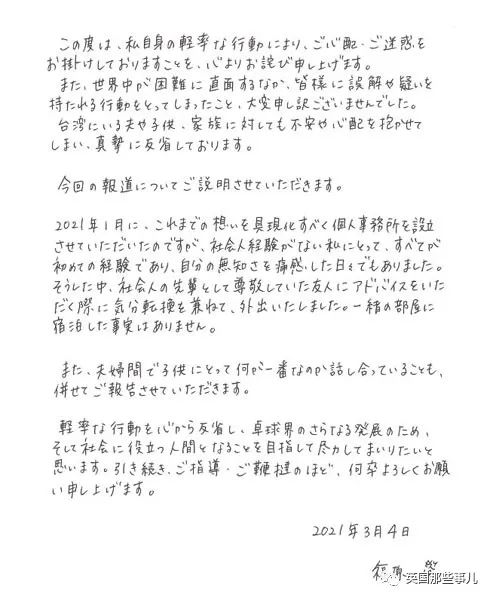 この度は、私自身の軽率な行動により、ご心配・ご迷惑を
お掛けしておりますことを、心よりお詫び申し上げます。
また、世界中が困難に直面するなか、皆様に誤解や疑いを
持たれる行動をとってしまったこと、大変申し訳ございませんでした。
台湾にいる夫や子供、家族に対しても不安や心配を抱かせて
しまい、真摯に反省しております。
今回の報道についてご説明させていただきます。
2021年1月に、これまでの想いを具現化すべく個人事務所を設立
させていただいたのですが、社会人経験がない私にとって、すべてが
初めての経験であり、自分の無知さを痛感した日々でもありました。
そうした中、社会人の先輩として尊敬していた友人にアドバイスをいた
だく際に気分転換を兼ねて、外出いたしました。一緒の部屋に
宿泊した事実はありません。
また、夫婦間で子供にとって何が一番なのか話し合っていることも、
併せてご報告させていただきます。
軽率な行動を心から反省し、卓球界のさらなる発展のため、
そして社会に役立つ人間となることを目指して尽力してまいりたいと
思います。引き続き、ご指導・ご鞭撻のほど、何卒よろしくお願
い申し上げます。
2021年3月4日
福原 愛
英国那些事儿